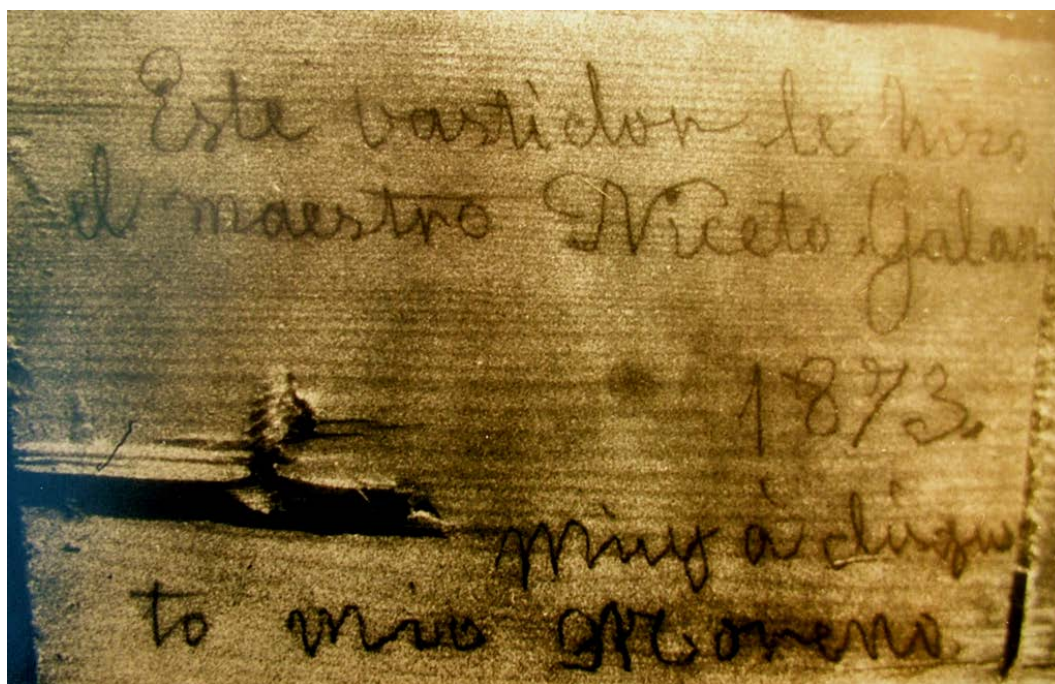 Este vastidor le hizo
el maestro Niceto Galan
1873.
muy á disgus
to mio Moreno